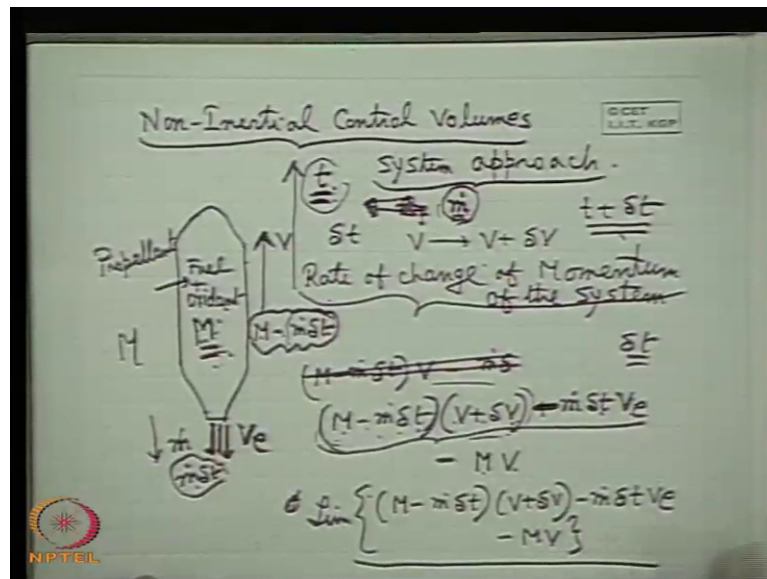 Non-Inertial Control Volumes
C CET
I.I.T. KGP
System approach.
t
ṁ
t + δt
δt V → V + δV
Rate of change of Momentum
of the System
Propellant
Fuel
+
Oxidant
M
V
M
M - ṁδt
δt
(M - ṁδt) V - ṁδ
(M - ṁδt)(V+δV) - ṁδt Ve
- MV
ṁ Ve
ṁδt
Lim {(M - ṁδt)(V+δV) - ṁδt Ve
- MV}
NPTEL